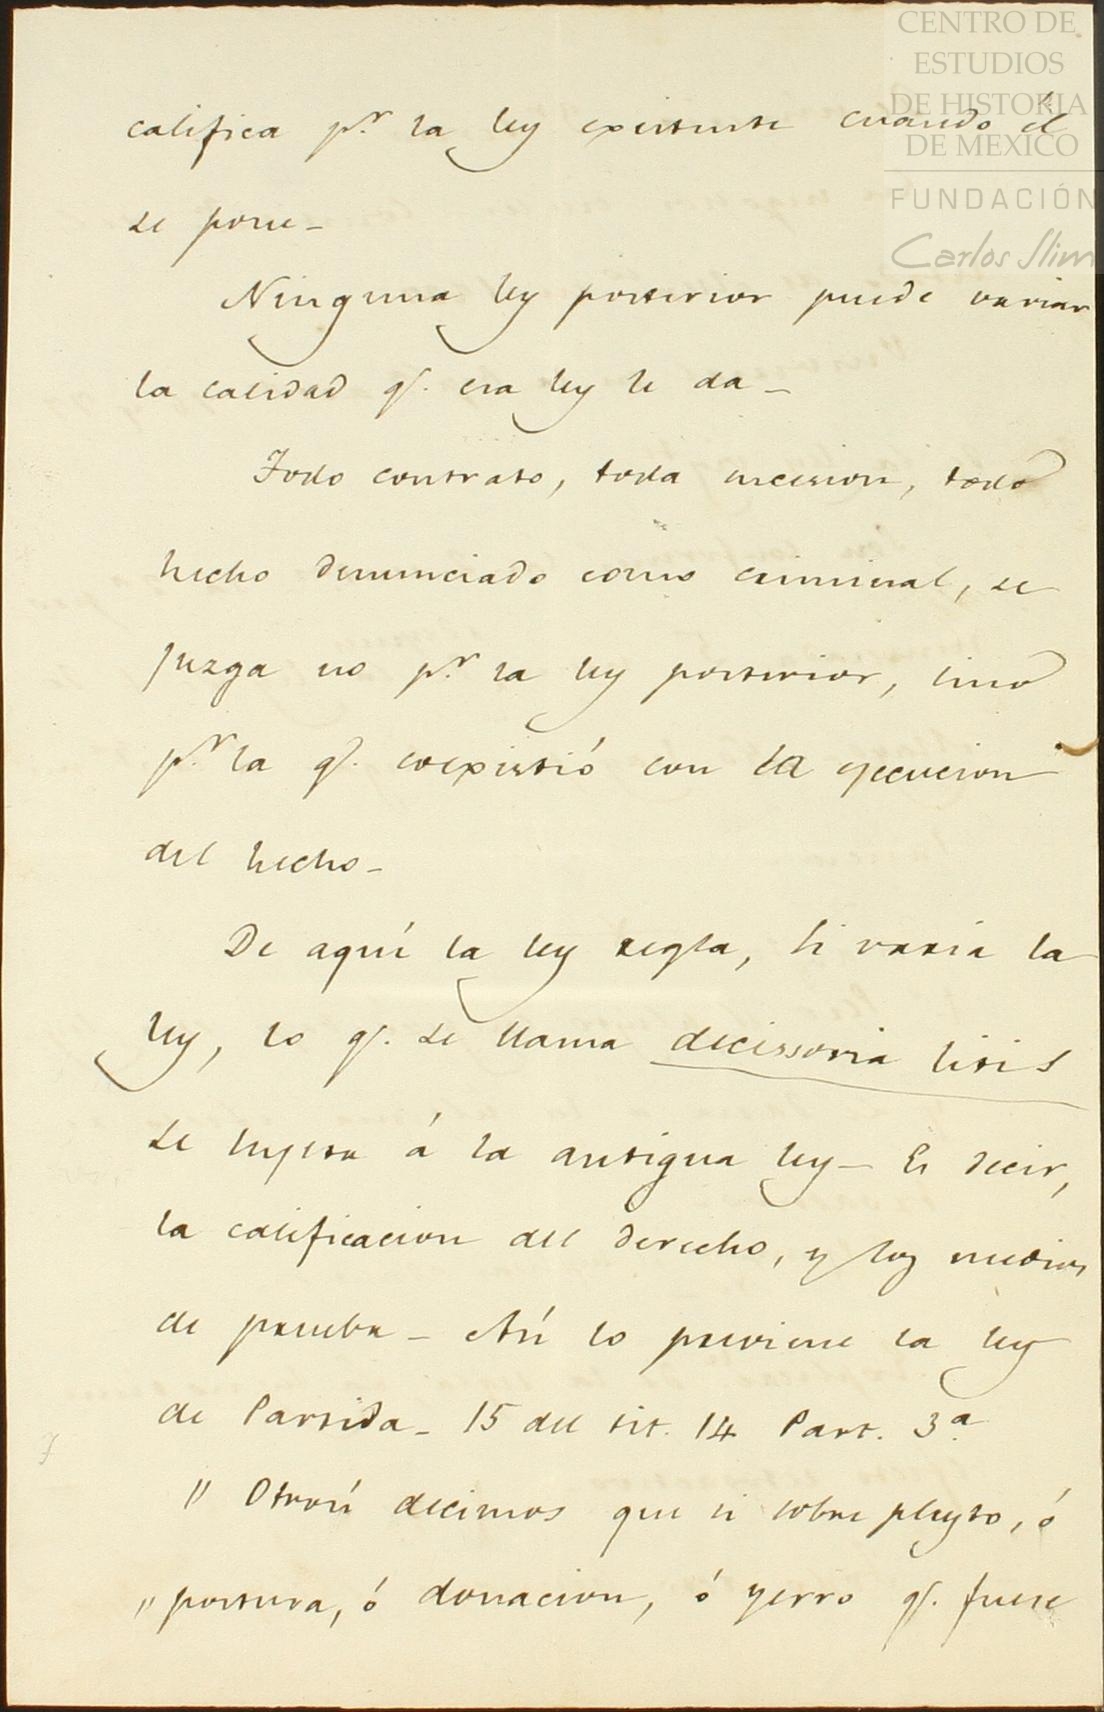 CENTRO DE
ESTUDIOS
DE HISTORIA
DE MEXICO
FUNDACIÓN
Carlos Slim
califica p.r la ley existente cuando él
se pone_
Ninguna ley posterior puede variar
la calidad q.e esa ley le da_
Todo contrato, toda sucesion, todo
hecho denunciado como criminal, se
juzga no p.r la ley posterior, sino
p.r la q.e coexistió con la ejecucion
del hecho_
De aquí la ley regla, si varia la
ley, lo q.e se llama decissoria litis
se sujeta á la antigua ley_ Es decir,
la calificacion del derecho, y los medios
de prueba_ Así lo previene la ley
de Partida_ 15 del tit. 14 Part. 3.a
" Otrosí decimos que si sobre pleyto, ó
" postura, ó donacion, ó yerro q.e fuese